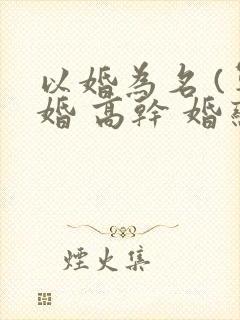 以婚為名(
婚 高幹 婚
煙火集